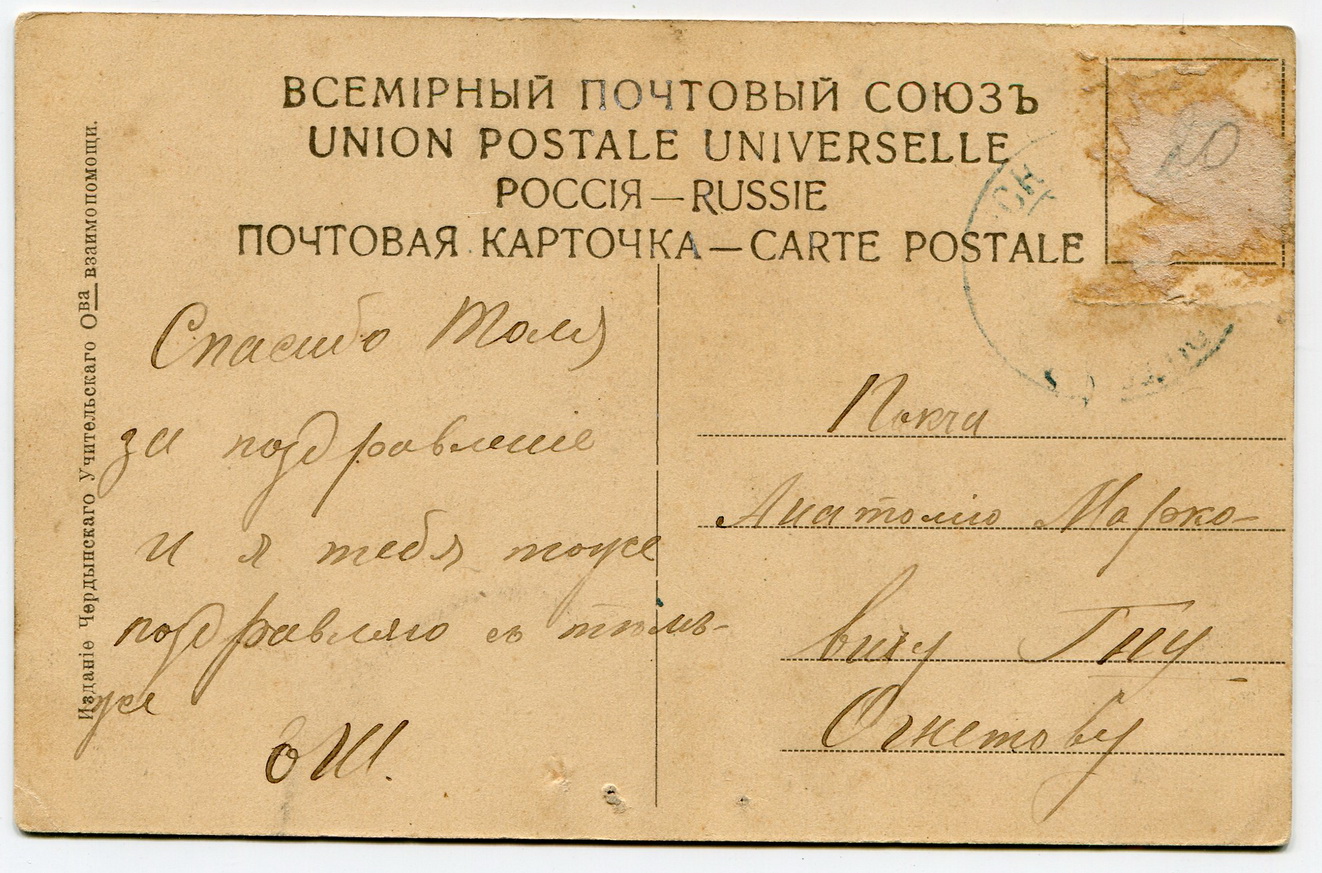 ВСЕМІРНЫЙ ПОЧТОВЫЙ СОЮЗЪ
UNION POSTALE UNIVERSELLE
РОССІЯ—RUSSIE
ПОЧТОВАЯ КАРТОЧКА—CARTE POSTALE
20
Изданіе Чердынскаго Учительскаго Ова взаимопомощи.
Спасибо Толя
за поздравленіе
и я тебя тоже
поздравляю съ тѣмъ-
же
ОШ.
Покча
Анатолію Марко-
вичу Гну
Огнетову